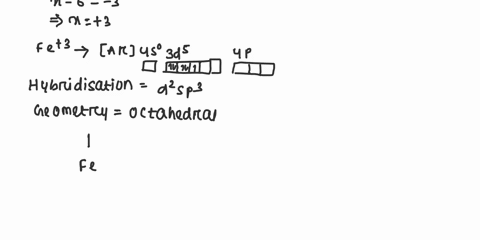 x - 6 = -3
⇒ x = +3
Fe+3 → [Ar] 4s⁰ 3d⁵ 4p
Hybridisation = d²sp³
Geometry = Octahedral
Fe